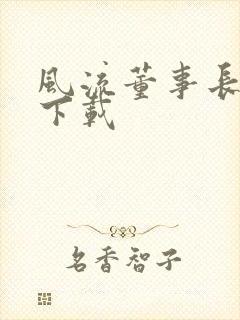 風流董事長
下載
名香智子